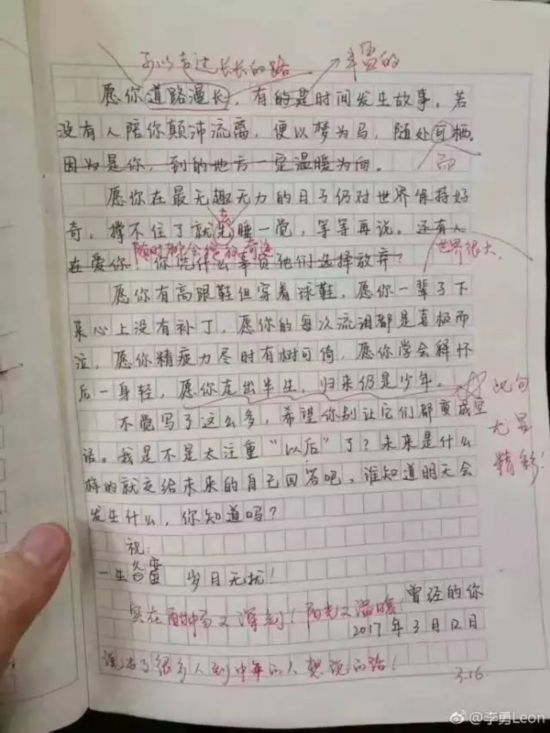 可以走过长长的路 丰富的
愿你道路漫长，有的是时间发生故事。若
没有人陪你颠沛流离，便以梦为马，随处可栖。
因为是你，到的地方一定温暖为向。
而
愿你在最无趣无力的日子仍对世界保持好
奇，撑不住了就先睡一觉，等等再说。还有人
随时都会 奇迹 世界很大
在爱你！你凭什么事负他们选择放弃？
愿你有高跟鞋但穿着球鞋，愿你一辈子下
来心上没有补丁，愿你的每次流泪都是喜极而
泣，愿你精疲力尽时有树可倚，愿你学会释怀
后一身轻，愿你走出半生，归来仍是少年。
此句
尤显
精彩！
不觉写了这么多，希望你别让它们都变成空
话。我是不是太注重“以后”了？未来是什么
样的就交给未来的自己回答吧，谁知道明天会
发生什么，你知道吗？
祝：
一生 岁月无忧！
实在 又深刻！阳光又温暖 曾经的你
2017年3月12日
说出了很多人到中年的人想说的话！
3.16
@李勇Leon